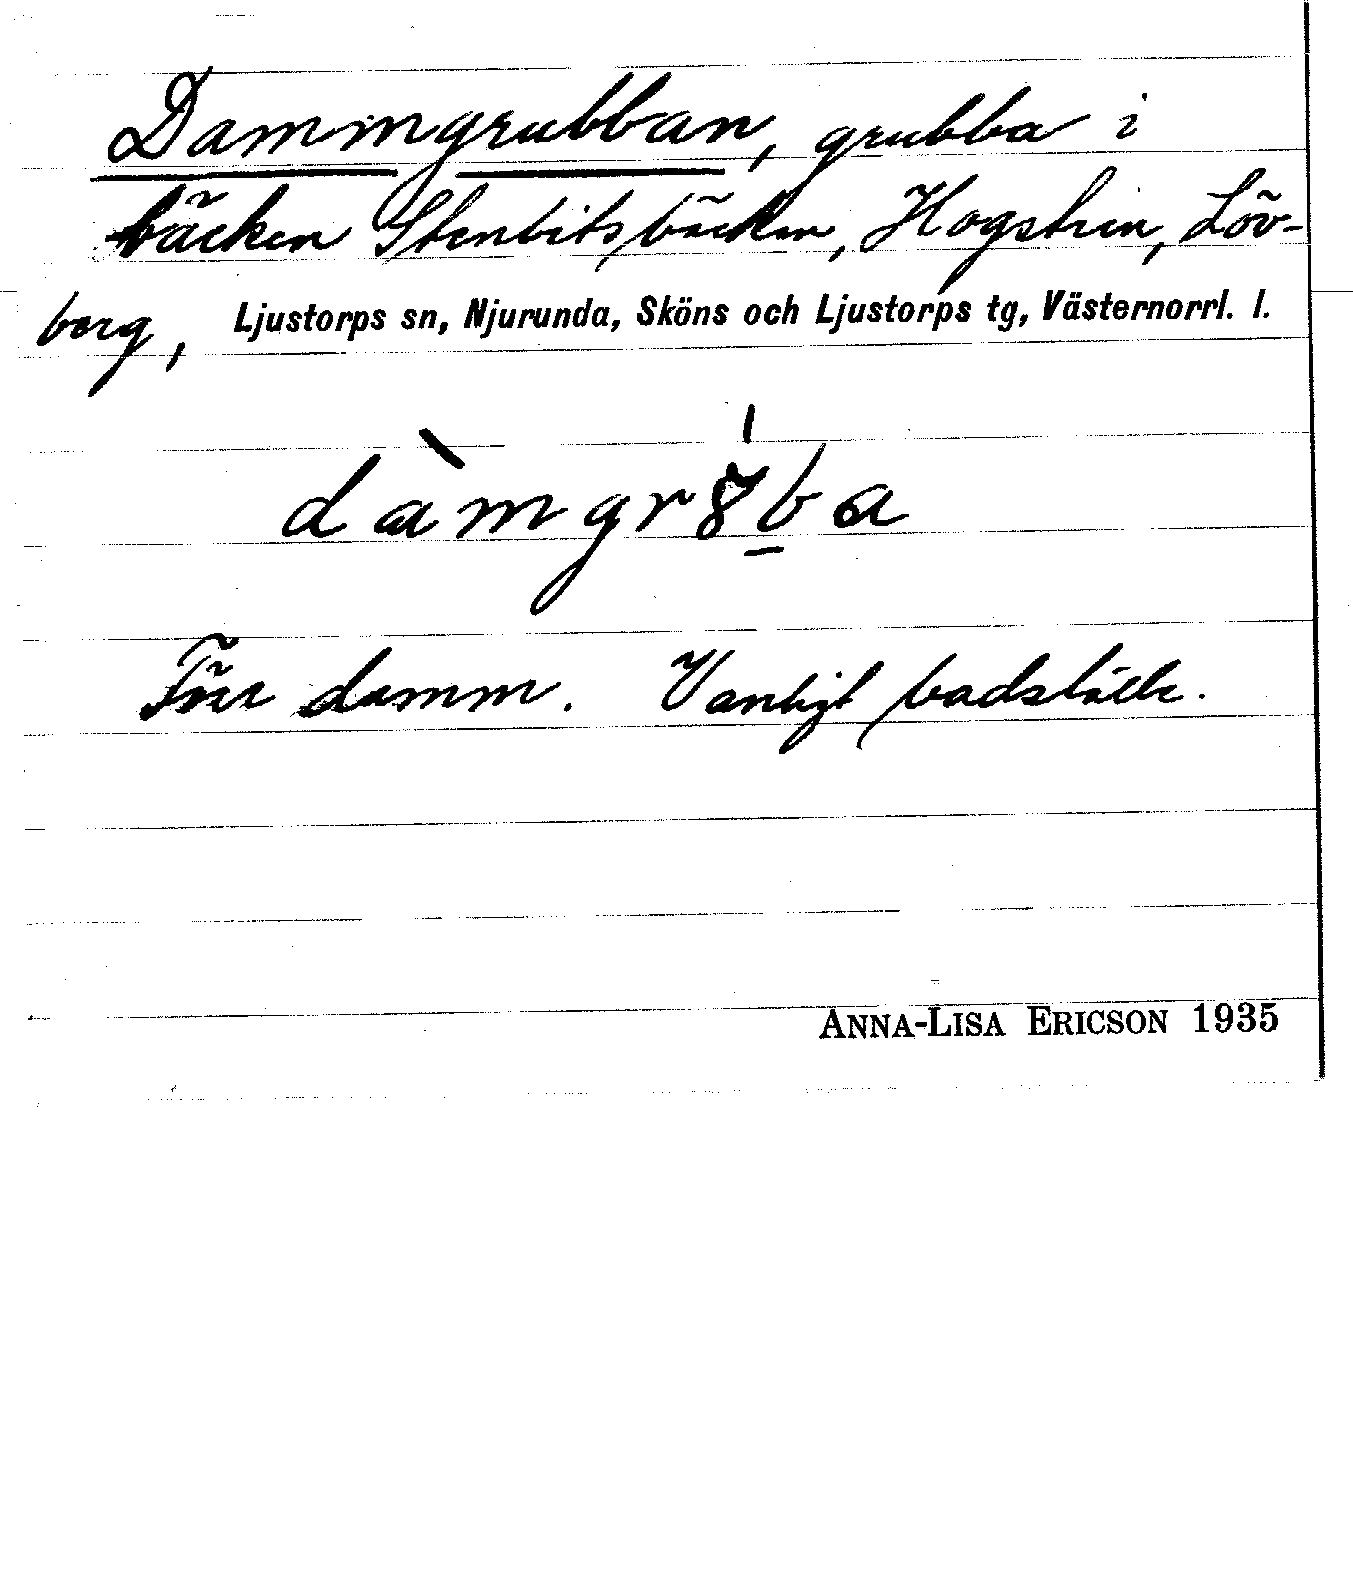 Dammgrubban, grubba i
bäcken Stenbitsbäcken, Hogstrin, Löv-
berg, Ljustorps sn, Njurunda, Sköns och Ljustorps tg, Västernorrl. l.
dàmgr8́b̲a
Förr damm. Vanligt badställe.
ANNA-LISA ERICSON 1935